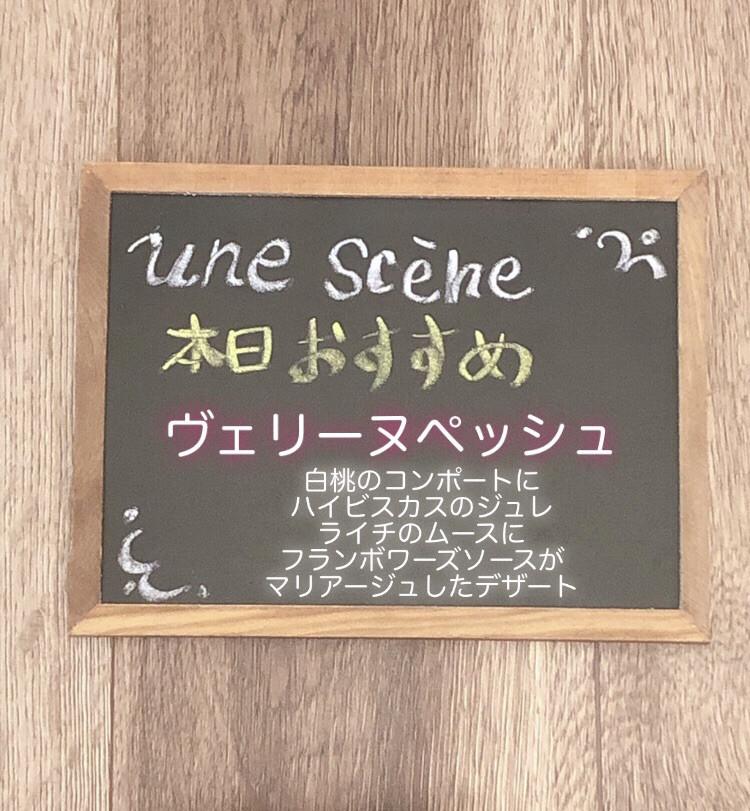 une scène
本日おすすめ
ヴェリーヌペッシュ
白桃のコンポートに
ハイビスカスのジュレ
ライチのムースに
フランボワーズソースが
マリアージュしたデザート